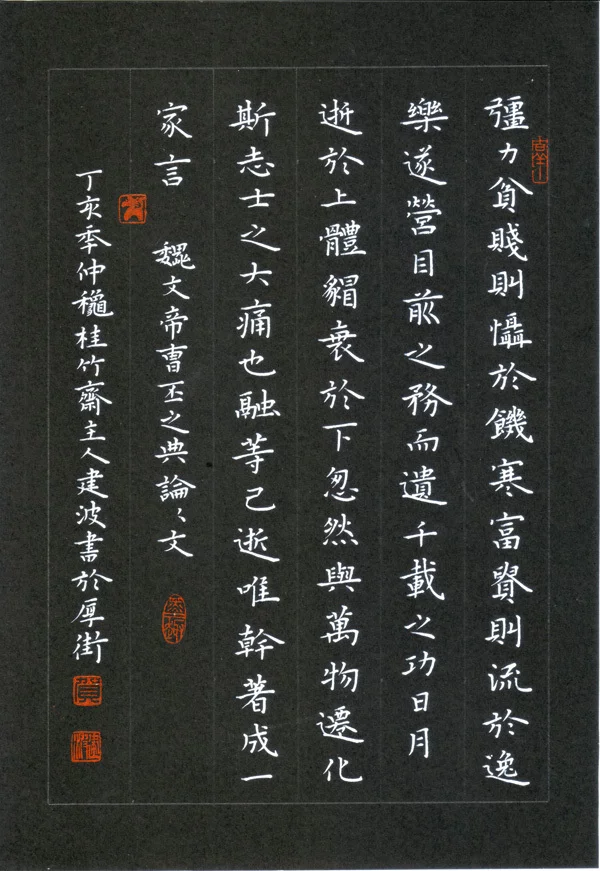 彊力貧賤則懾於饑寒富貴則流於逸
樂遂營目前之務而遺千載之功日月
逝於上體貌衰於下忽然與萬物遷化
斯志士之大痛也融等已逝唯幹著成一
家言 魏文帝曹丕之典論〻文
丁亥秊仲穐桂竹齋主人建波書於厚街
吉羊